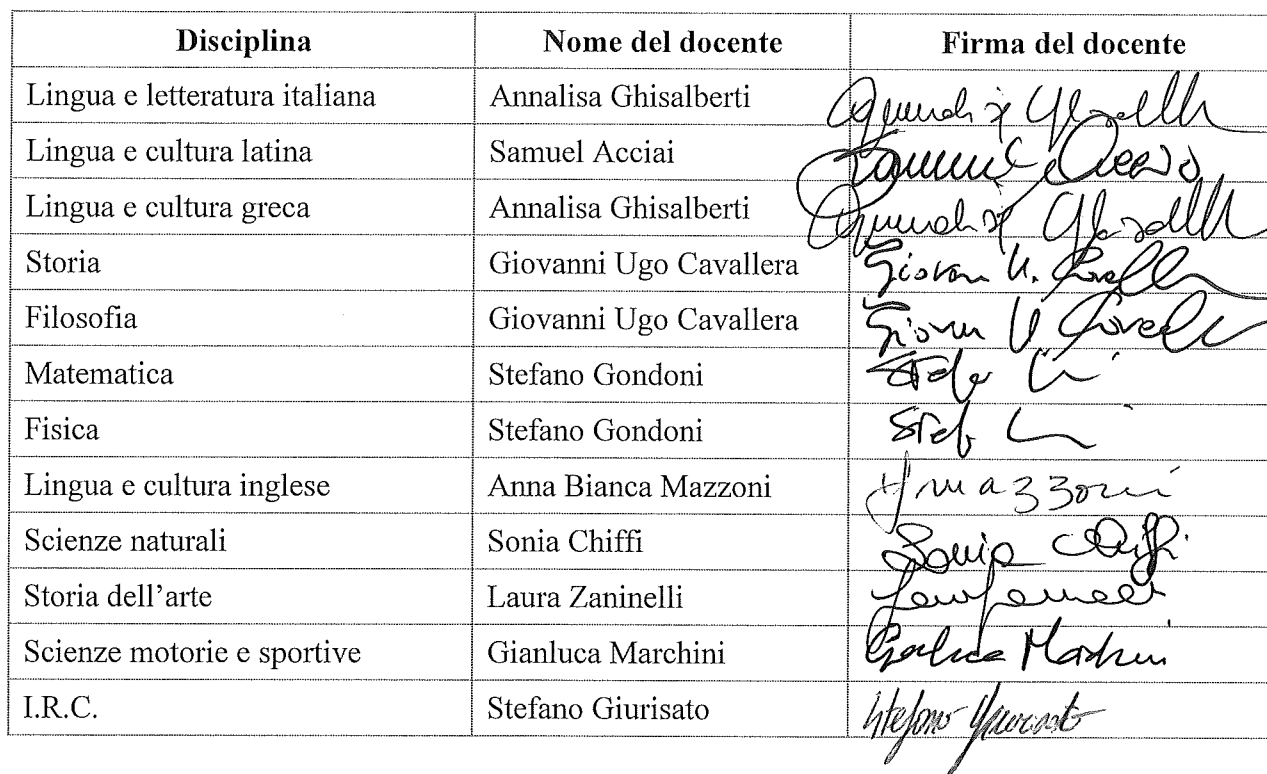 Disciplina Nome del docente Firma del docente
Lingua e letteratura italiana Annalisa Ghisalberti
Lingua e cultura latina Samuel Acciai
Lingua e cultura greca Annalisa Ghisalberti
Storia Giovanni Ugo Cavallera Giovanni U.
Filosofia Giovanni Ugo Cavallera
Matematica Stefano Gondoni
Fisica Stefano Gondoni
Lingua e cultura inglese Anna Bianca Mazzoni Mazzoni
Scienze naturali Sonia Chiffi Sonia Chiffi
Storia dell’arte Laura Zaninelli
Scienze motorie e sportive Gianluca Marchini Gianluca Marchini
I.R.C. Stefano Giurisato Stefano Giurisato